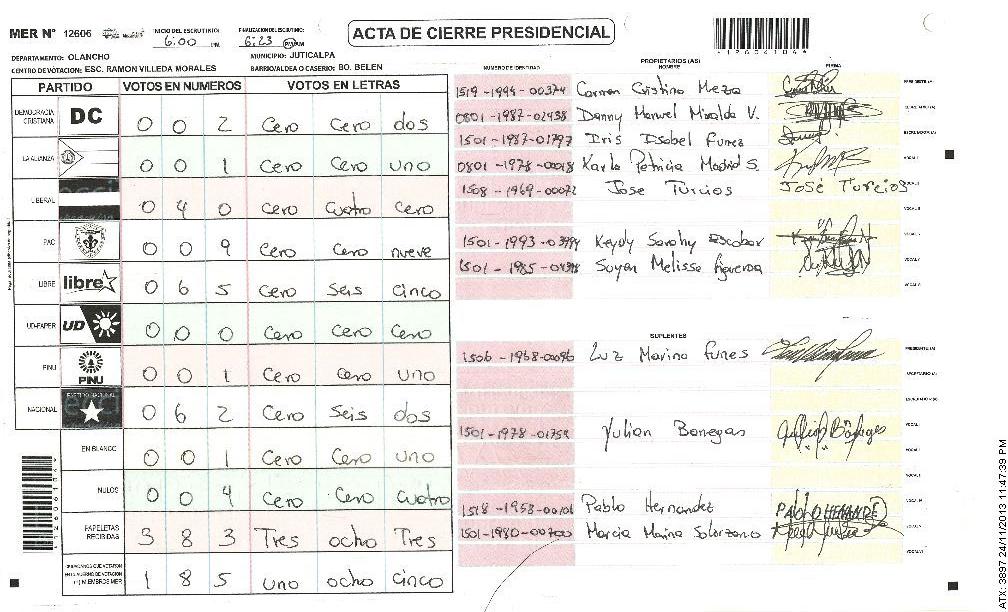 MER N° 12606
INICIO DEL ESCRUTINIO: 6:00 PM.
FINALIZACION DEL ESCRUTINIO: 6:23 PM
ACTA DE CIERRE PRESIDENCIAL
DEPARTAMENTO: OLANCHO
MUNICIPIO: JUTICALPA
CENTRO DE VOTACION: ESC. RAMON VILLEDA MORALES
BARRIO/ALDEA O CASERIO: BO. BELEN
PARTIDO VOTOS EN NUMEROS VOTOS EN LETRAS
DEMOCRACIA CRISTIANA DC 0 0 2 Cero Cero dos
LA ALIANZA 0 0 1 Cero Cero uno
LIBERAL 0 4 0 Cero Cuatro Cero
PAC 0 0 9 Cero Cero nueve
LIBRE libre 0 6 5 Cero Seis cinco
UD-FAPER UD 0 0 0 Cero Cero Cero
PINU PINU 0 0 1 Cero Cero uno
NACIONAL PARTIDO NACIONAL 0 6 2 Cero Seis dos
EN BLANCO 0 0 1 Cero Cero uno
NULOS 0 0 4 Cero Cero Cuatro
PAPELETAS RECIBIDAS 3 8 3 Tres ocho Tres
CIUDADANOS QUE VOTARON EN CUADERNO DE VOTACION (+) MIEMBROS MER 1 8 5 uno ocho cinco
NUMERO DE IDENTIDAD PROPIETARIOS (AS) NOMBRE FIRMA
1519-1994-00374 Carmen Cristina Meza
0801-1987-02438 Danny Manuel Miralda V.
1501-1987-01797 Iris Isabel Funez
0801-1978-00018 Karla Patricia Madrid S.
1508-1969-00072 Jose Turcios JOSÉ TURCIOS
1501-1993- Keydy Sarahy Escobar
1501-1985- Suyan Melissa figueroa
SUPLENTES
1506-1968-00096 Luz Marina Funes
1501-1978-01759 Yulian Banegas
1518-1958-00101 Pablo Hernandez
1501-1980-00700 Marcia Marina Solorzano
ATX: 3897 24/11/2013 11:47:39 PM